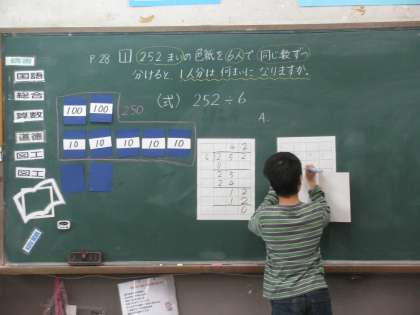 P28 1 252まいの色紙を6人で同じ数ずつ
分けると、1人分は何まいになりますか。
(式) 252÷6
A.
国語
総合
算数
道徳
図工
図工
100 100 250
10 10 10 10 10
4 2
6 2 5 2
0
2 5
2 4
1 2
1 2
0